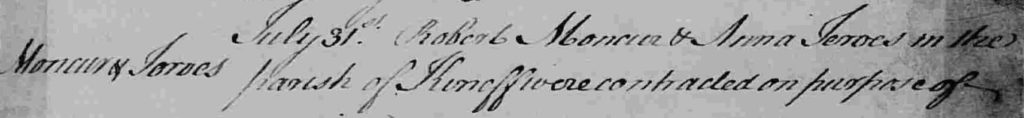 July 31st. Robert Moncur & Anna Jeroes in the
Moncur & Joroes
parish of Kinoff were contracted on purpose of